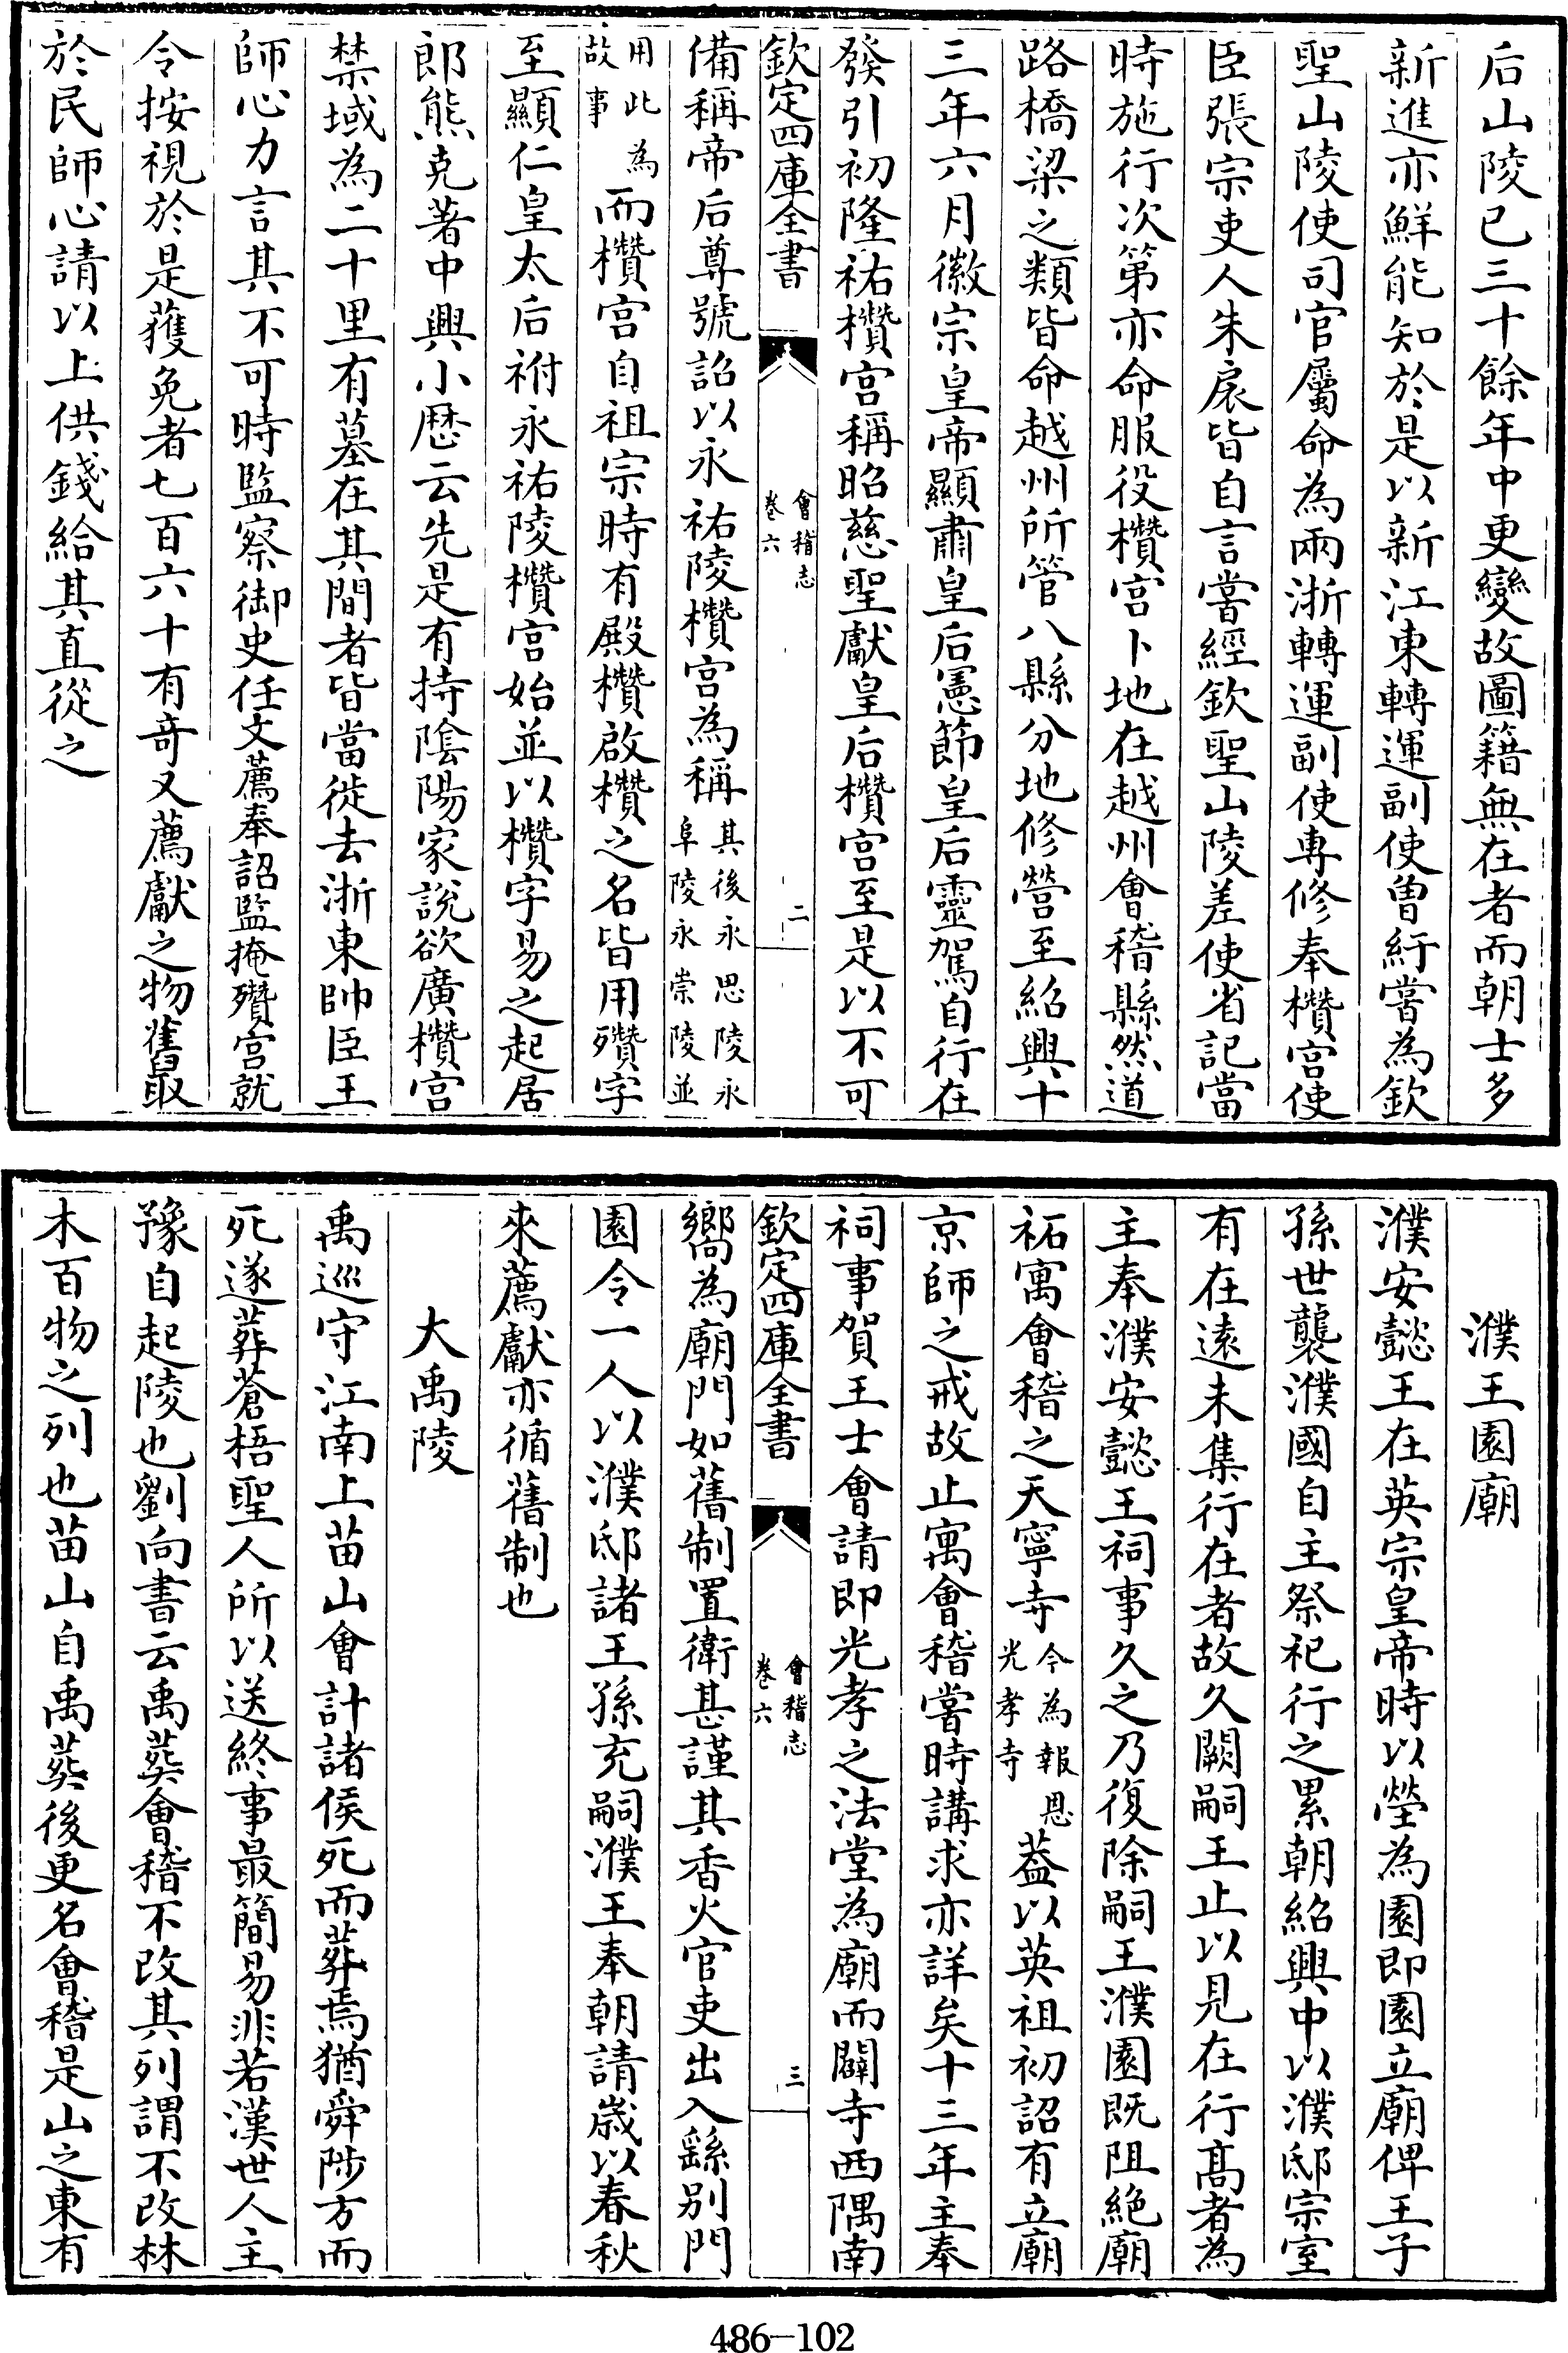 后山陵已三十餘年中更變故圖籍無在者而朝士多
新進亦鮮能知於是以新江東轉運副使曾紆嘗為欽
聖山陵使司官屬命為兩浙轉運副使專修奉欑宮使
臣張宗吏人朱扆皆自言嘗經欽聖山陵差使省記當
時施行次第亦命服役欑宮卜地在越州會稽縣然道
路橋梁之類皆命越州所管八縣分地修營至紹興十
三年六月徽宗皇帝顯肅皇后憲節皇后靈駕自行在
發引初隆祐欑宮稱昭慈聖獻皇后欑宮至是以不可
欽定四庫全書
會稽志
卷六
二
備稱帝后尊號詔以永祐陵欑宮為稱其後永思陵永
阜陵永崇陵並
用此為
故事而欑宮自祖宗時有殿欑啟欑之名皆用殯字
至顯仁皇太后祔永祐陵欑宮始並以欑字易之起居
郎熊克著中興小厯云先是有持隂陽家說欲廣欑宮
禁域為二十里有墓在其間者皆當徙去浙東帥臣王
師心力言其不可時監察御史任文薦奉詔監掩殯宮就
令按視於是獲免者七百六十有奇又薦獻之物舊最
於民師心請以上供錢給其直從之
濮王園廟
濮安懿王在英宗皇帝時以塋為園即園立廟俾王子
孫世襲濮國自主祭祀行之累朝紹興中以濮邸宗室
有在逺未集行在者故久闕嗣王止以見在行髙者為
主奉濮安懿王祠事久之乃復除嗣王濮園既阻絶廟
祏寓會稽之天寧寺今為報恩
光孝寺葢以英祖初詔有立廟
京師之戒故止寓會稽當時講求亦詳矣十三年主奉
祠事賀王士會請即光孝之法堂為廟而闢寺西隅南
欽定四庫全書
會稽志
卷六
三
嚮為廟門如舊制置衛甚謹其香火官吏出入繇别門
園令一人以濮邸諸王孫充嗣濮王奉朝請歲以春秋
來薦獻亦循舊制也
大禹陵
禹巡守江南上苗山會計諸侯死而葬焉猶舜陟方而
死遂葬蒼梧聖人所以送終事最簡易非若漢世人主
豫自起陵也劉向書云禹葬會稽不改其列謂不改林
木百物之列也苗山自禹葬後更名會稽是山之東有
486-102